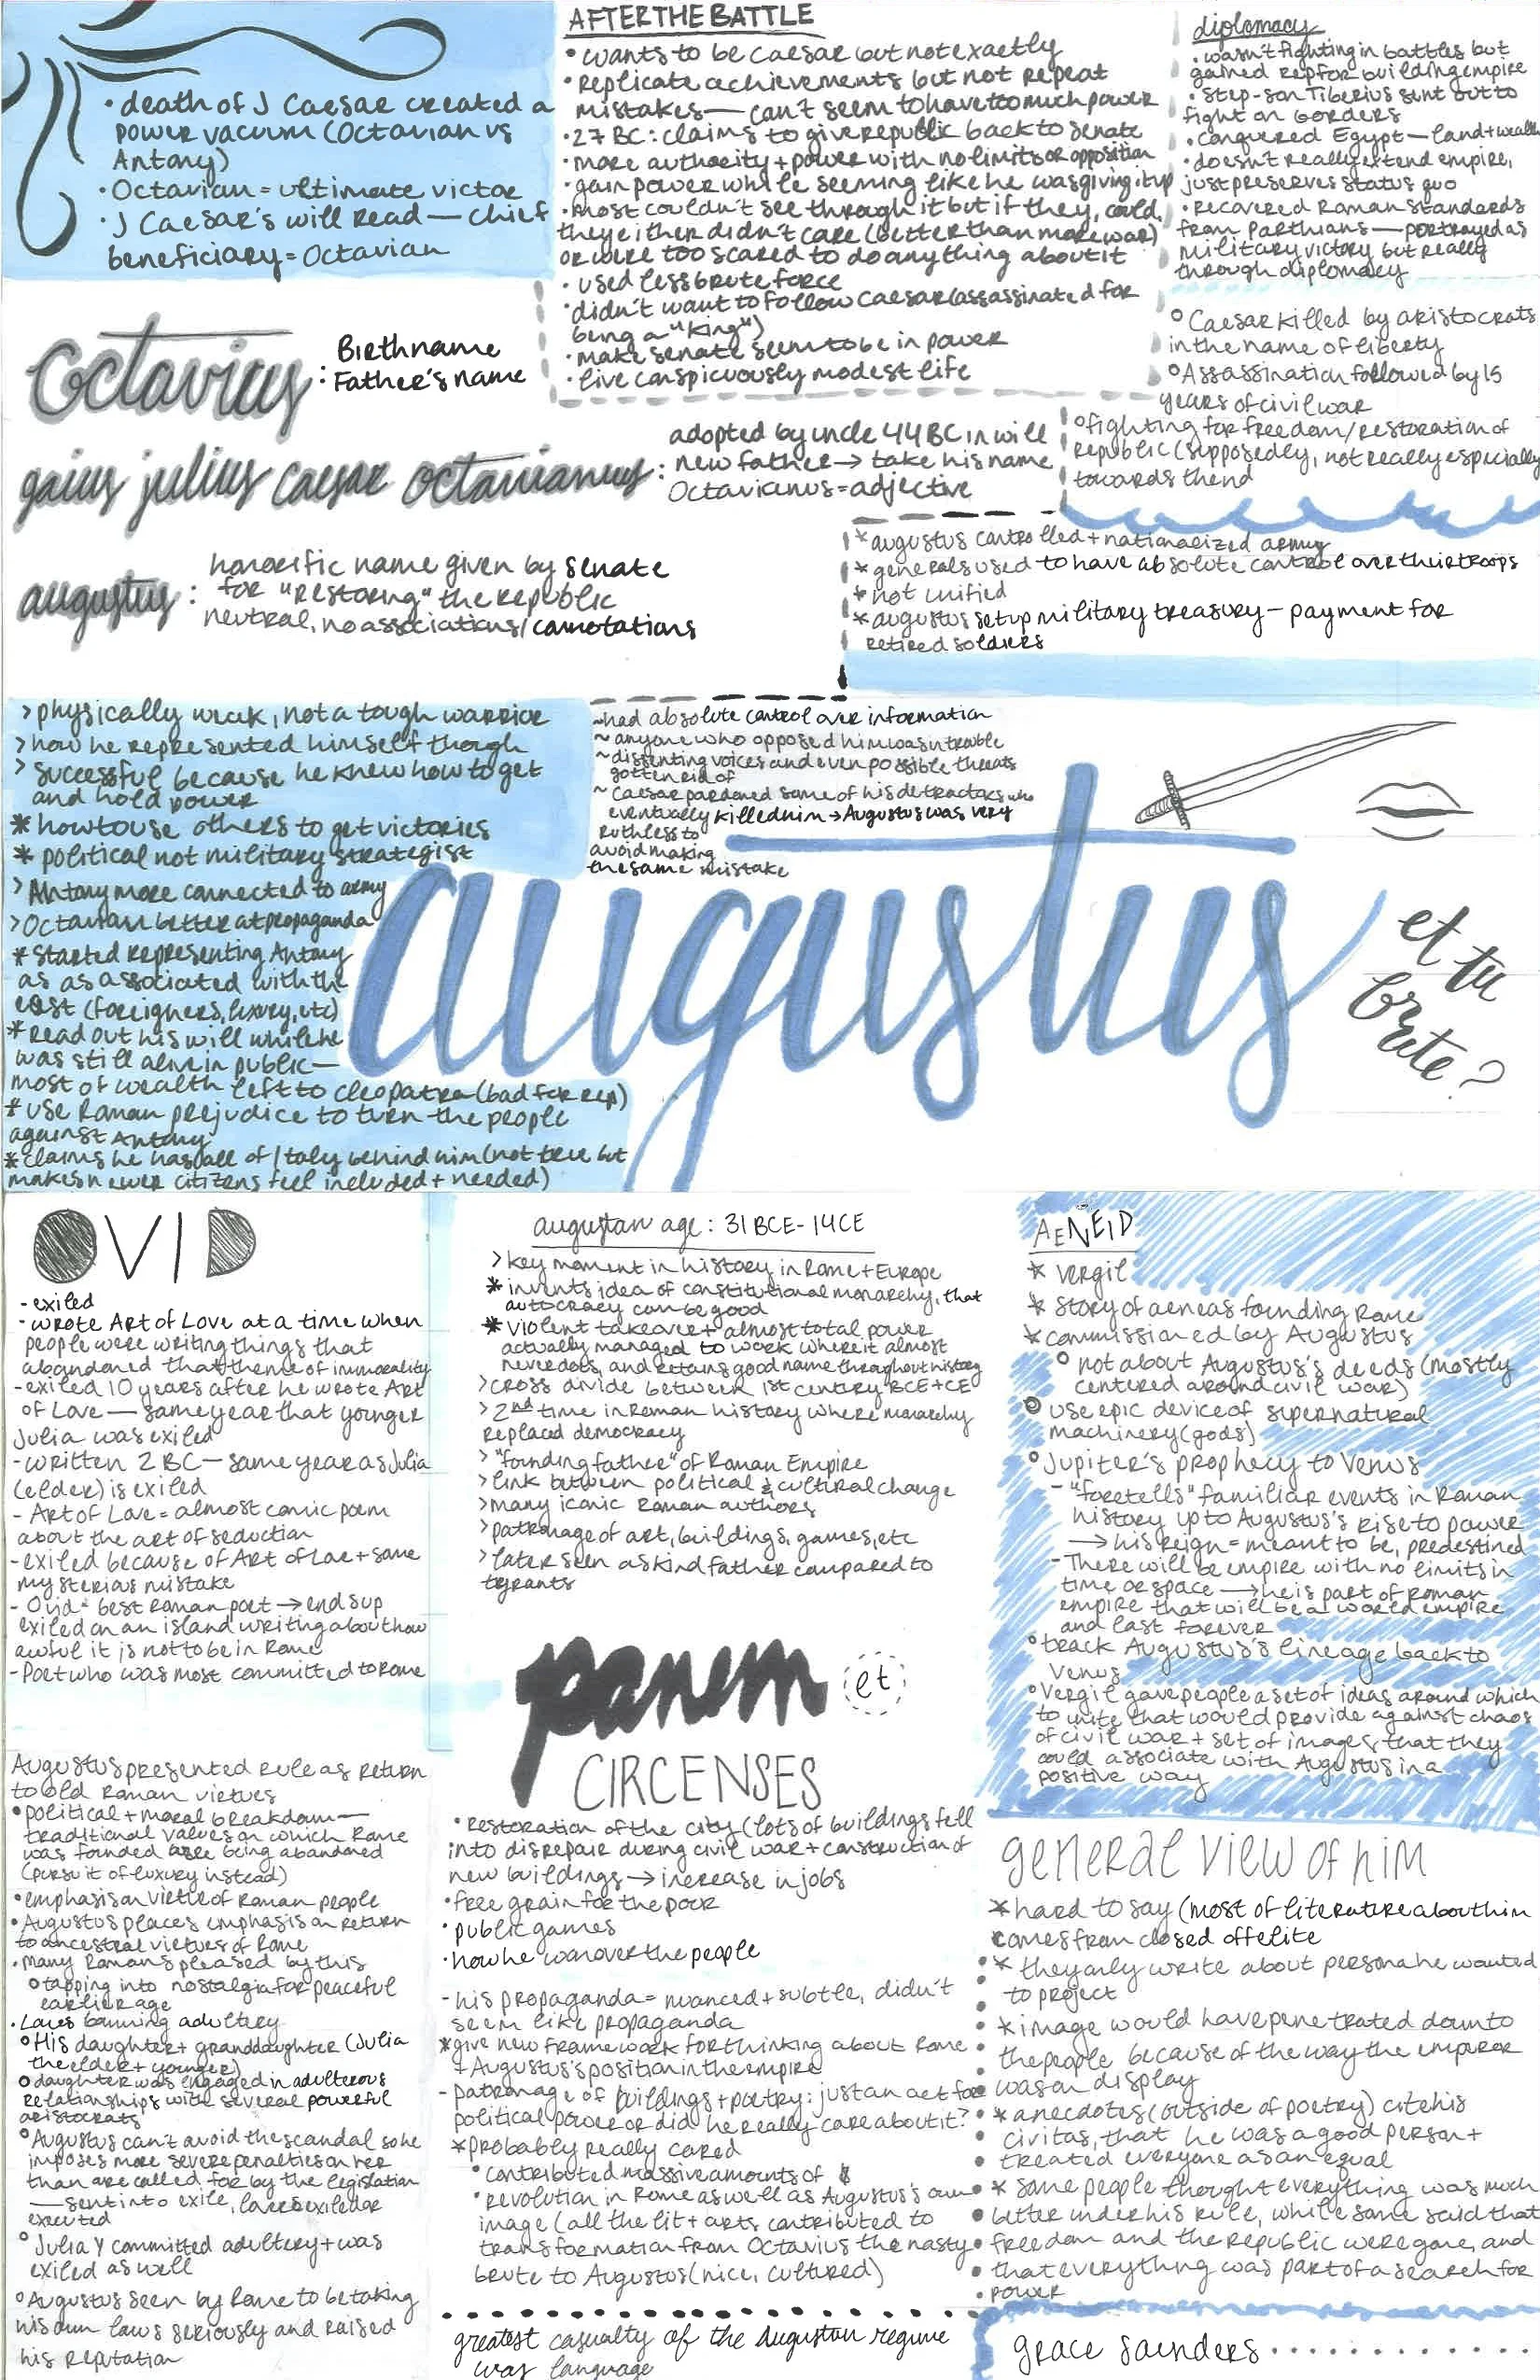 • death of J Caesar created a
power vacuum (Octavian vs
Antony)
• Octavian = ultimate victor
• J Caesar's will read — chief
beneficiary = Octavian
AFTER THE BATTLE
• wants to be Caesar but not exactly
• replicate achievements but not repeat
mistakes — can't seem to have too much power
• 27 BC: claims to give republic back to senate
• more authority + power with no limits or opposition
• gain power while seeming like he was giving it up
• most couldn't see through it but if they, could,
they either didn't care (better than more war)
or were too scared to do anything about it
• used less brute force
• didn't want to follow Caesar (assassinated for
being a "King")
• make senate seem to be in power
• live conspicuously modest life
diplomacy
• wasn't fighting in battles but
gained rep for building empire
• Step-son Tiberius sent out to
fight on borders
• conquered Egypt — land + wealth
• doesn't really extend empire,
just preserves status quo
• recovered Roman standards
from Parthians — portrayed as
military victory but really
through diplomacy
° Caesar killed by aristocrats
in the name of liberty
° Assassination followed by 15
years of civil war
° fighting for freedom/restoration of
republic (supposedly, not really especially
towards thend
Octavius
: Birthname
Father's name
gaius julius caesar octavianus:
adopted by uncle 44 BC in will
new father → take his name
Octavianus = adjective
augustus:
honorific name given by senate
for "restoring" the republic
neutral, no associations/connotations
* augustus controlled + nationalized army
* generals used to have absolute control over their troops
* not unified
* augustus set up military treasury – payment for
retired soldiers
> physically weak, not a tough warrior
> how he represented himself though
> successful because he knew how to get
and hold power
* how to use others to get victories
* political not military strategist
> Antony more connected to army
> Octavian better at propaganda
* Started representing Antony
as as associated with the
east (foreigners, luxury, etc)
* Read out his will while he
was still alive in public—
most of wealth left to Cleopatra (bad for rep)
* use Roman prejudice to turn the people
against Antony
* claims he has all of Italy behind him (not true but
makes newer citizens feel included + needed)
~ had absolute control over information
~ anyone who opposed him was in trouble
~ dissenting voices and even possible threats
gotten rid of
~ Caesar pardoned some of his detractors who
eventually killed him → Augustus was very
ruthless to
avoid making
the same mistake
augustus
et tu
brute?
OVID
- exiled
- wrote Art of Love at a time when
people were writing things that
abandoned that theme of immorality
- exiled 10 years after he wrote Art
of Love — same year that younger
Julia was exiled
- written 2 BC — same year as Julia
(elder) is exiled
- Art of Love = almost comic poem
about the art of seduction
- exiled because of Art of Love + some
mysterious mistake
- Ovid = best Roman poet → ends up
exiled on an island writing about how
awful it is not to be in Rome
- Poet who was most committed to Rome
augustan age: 31 BCE - 14 CE
> key moment in history in Rome + Europe
* invents idea of constitutional monarchy, that
autocracy can be good
* violent takeover + almost total power
actually managed to work where it almost
never does, and retains good name throughout history
> cross divide between 1st century BCE + CE
> 2nd time in Roman history where monarchy
replaced democracy
> "founding father" of Roman Empire
> link between political & cultural change
> many iconic Roman authors
> patronage of art, buildings, games, etc
> later seen as kind father compared to
tyrants
AENEID
* Vergil
* Story of aeneas founding Rome
* commissioned by Augustus
° not about Augustus's deeds (mostly
centered around civil war)
° use epic device of supernatural
machinery (gods)
° Jupiter's prophecy to Venus
- "foretells" familiar events in Roman
history up to Augustus's rise to power
→ his reign = meant to be, predestined
- There will be empire with no limits in
time or space → he is part of Roman
empire that will be a world empire
and last forever
° track Augustus's lineage back to
Venus
° Vergil gave people a set of ideas around which
to unite that would provide against chaos
of civil war + set of images that they
could associate with Augustus in a
positive way
Augustus presented rule as return
to old Roman virtues
• political + moral breakdown —
traditional values on which Rome
was founded are being abandoned
(pursuit of luxury instead)
• emphasis on virtue of Roman people
• Augustus places emphasis on return
to ancestral virtues of Rome
• many Romans pleased by this
° tapping into nostalgia for peaceful
earlier age
• Laws banning adultery
° His daughter + granddaughter (Julia
the elder + younger)
° daughter was engaged in adulterous
relationships with several powerful
aristocrats
° Augustus can't avoid the scandal so he
imposes more severe penalties on her
than are called for by the legislation
— sent into exile, lovers exiled or
executed
° Julia Y committed adultery + was
exiled as well
° Augustus seen by Rome to be taking
his own laws seriously and raised
his reputation
panem et
CIRCENSES
• Restoration of the city (lots of buildings fell
into disrepair during civil war + construction of
new buildings → increase in jobs
• free grain for the poor
• public games
• how he won over the people
- his propaganda = nuanced + subtle, didn't
seem like propaganda
* give new framework for thinking about Rome
+ Augustus's position in the empire
- patronage of buildings + poetry: just an act for
political power or did he really care about it?
* probably really cared
• contributed massive amounts of $
• revolution in Rome as well as Augustus's own
image (all the lit + arts contributed to
transformation from Octavius the nasty
brute to Augustus (nice, cultured)
greatest casualty of the Augustan regime
was language
general view of him
* hard to say (most of literature about him
comes from closed off elite
* they only write about persona he wanted
to project
* image would have penetrated down to
the people because of the way the emperor
was on display
* anecdotes (outside of poetry) cite his
civitas, that he was a good person +
treated everyone as an equal
* some people thought everything was much
better under his rule, while some said that
freedom and the republic were gone, and
that everything was part of a search for
power
grace saunders